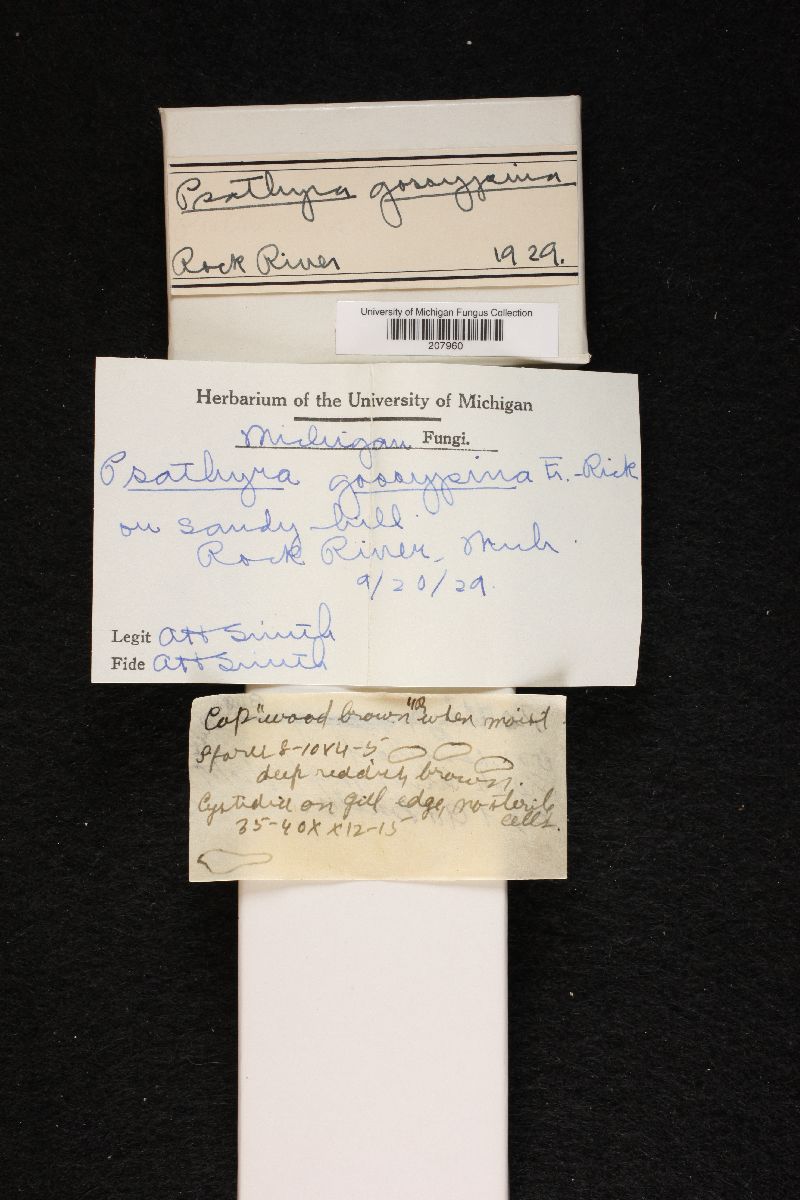 Psathyra gossypina
Rock River 1929.
University of Michigan Fungus Collection
207960
Herbarium of the University of Michigan
Michigan Fungi.
Psathyra gossypina Fr. - Rick
on sandy hill
Rock River, Mich.
9/20/29.
Legit AH Smith
Fide AH Smith
Cap "wood brown" when moist.
Spores 8-10x4-5
deep reddish brown.
Cystidia on gill edge, no sterile
cells.
35-40 x 12-15